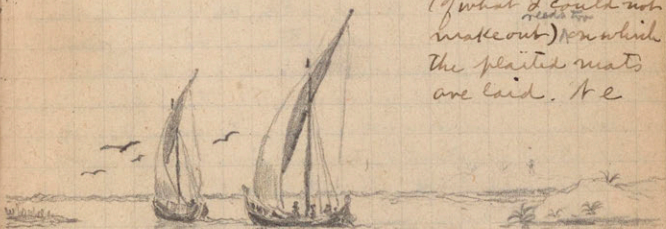 (of what I could not
reeds too
make out) on which
the plaited mats
are laid. N e